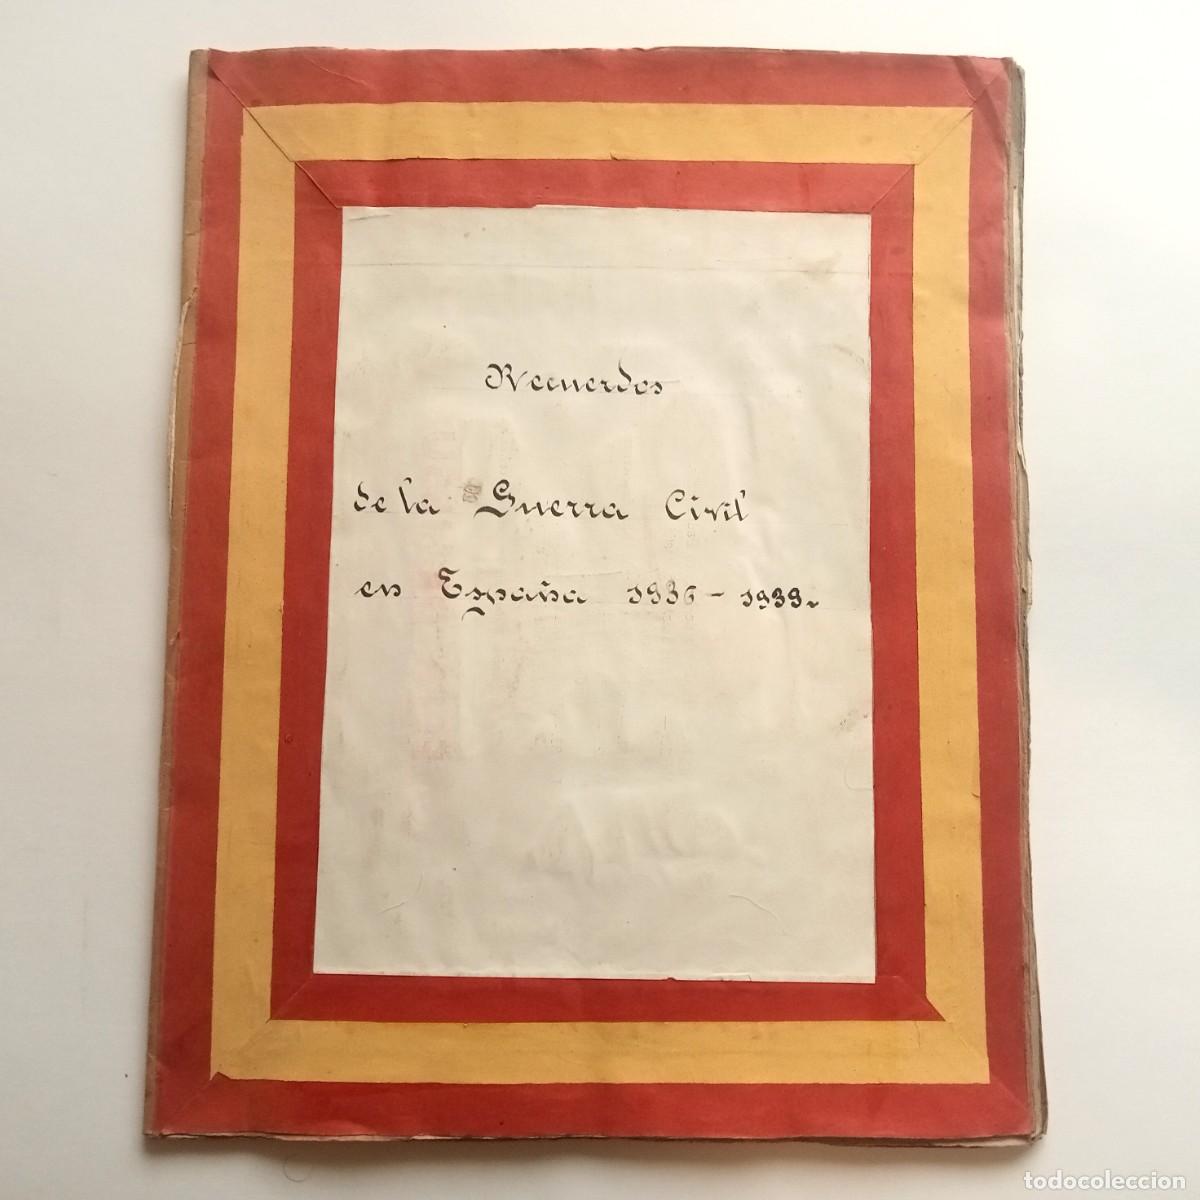 Recuerdos
de la Guerra Civil
en España 1936 - 1939.
todocoleccion